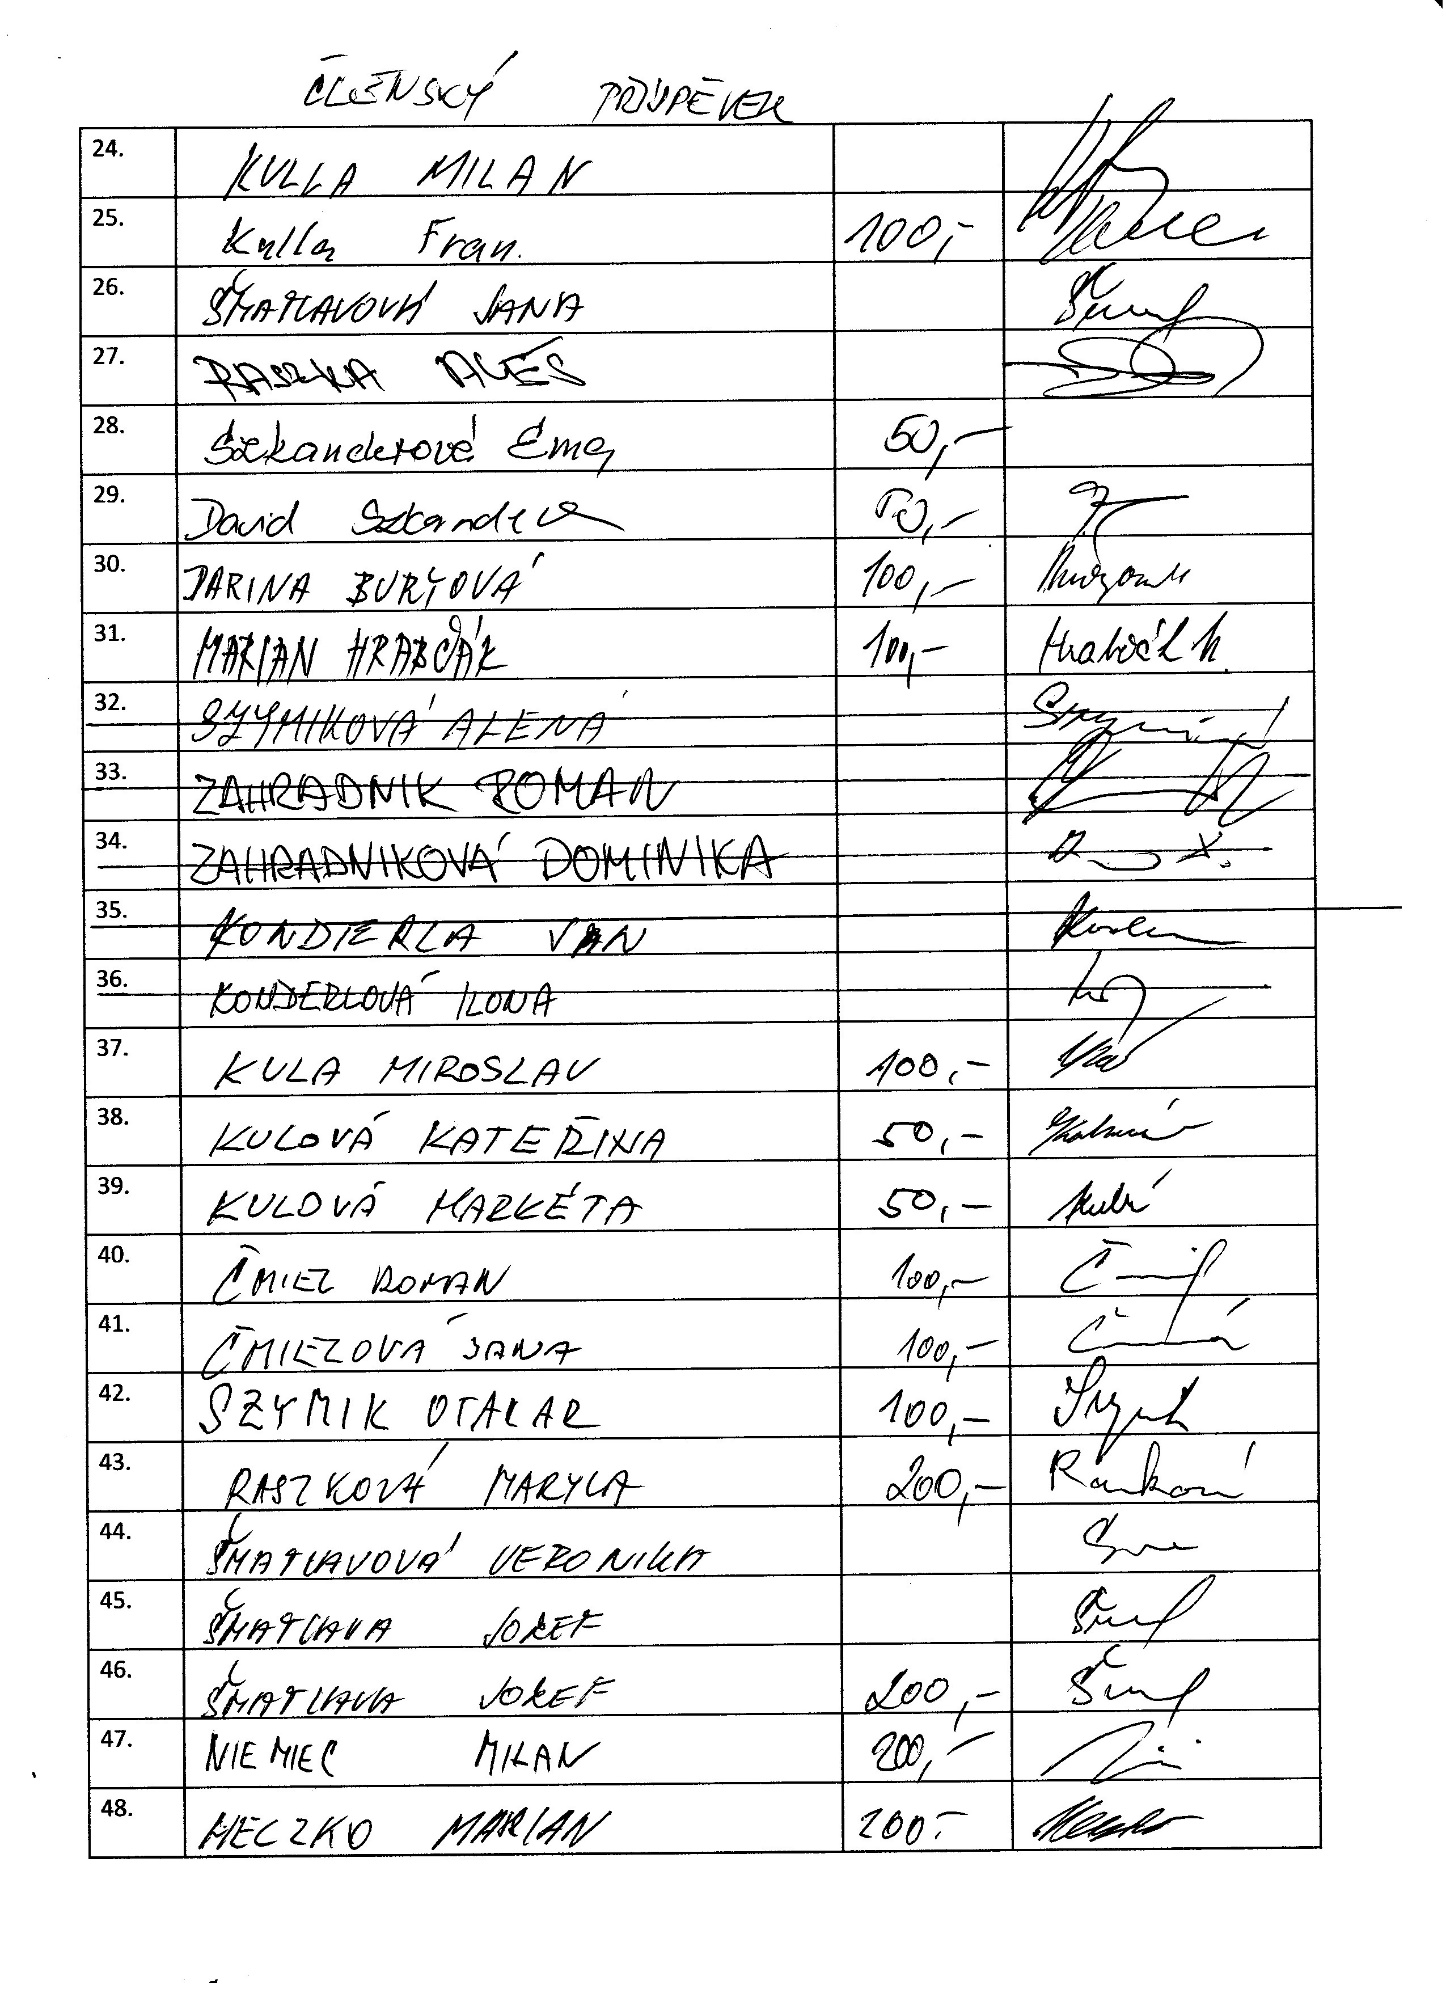 ČLENSKÝ PŘÍSPĚVEK
24. KULLA MILAN
25. Kulla Fran. 100,-
26. ŠMATLAVOVÁ JANA
27. RASZKA ALEŠ
28. Szkanderová Ema 50,-
29. David Szkandera 50,-
30. DARINA BURYOVÁ 100,-
31. MARIAN HRABČÁK 100,- Hrabčák M.
32. SZYMIKOVÁ ALENA
33. ZAHRADNIK ROMAN
34. ZAHRADNIKOVÁ DOMINIKA
35. KONDERLA JAN
36. KONDERLOVÁ ILONA
37. KULA MIROSLAV 100,-
38. KULOVÁ KATEŘINA 50,-
39. KULOVÁ MARKÉTA 50,-
40. ČMIEL ROMAN 100,-
41. ČMIELOVÁ JANA 100,-
42. SZYMIK OTAKAR 100,-
43. RASZKOVÁ MARYLA 200,-
44. ŠMATLAVOVÁ VERONIKA
45. ŠMATLAVA JOZEF
46. ŠMATLAVA JOZEF 200,-
47. NIEMIEC MILAN 200,-
48. HECZKO MARIAN 200.-